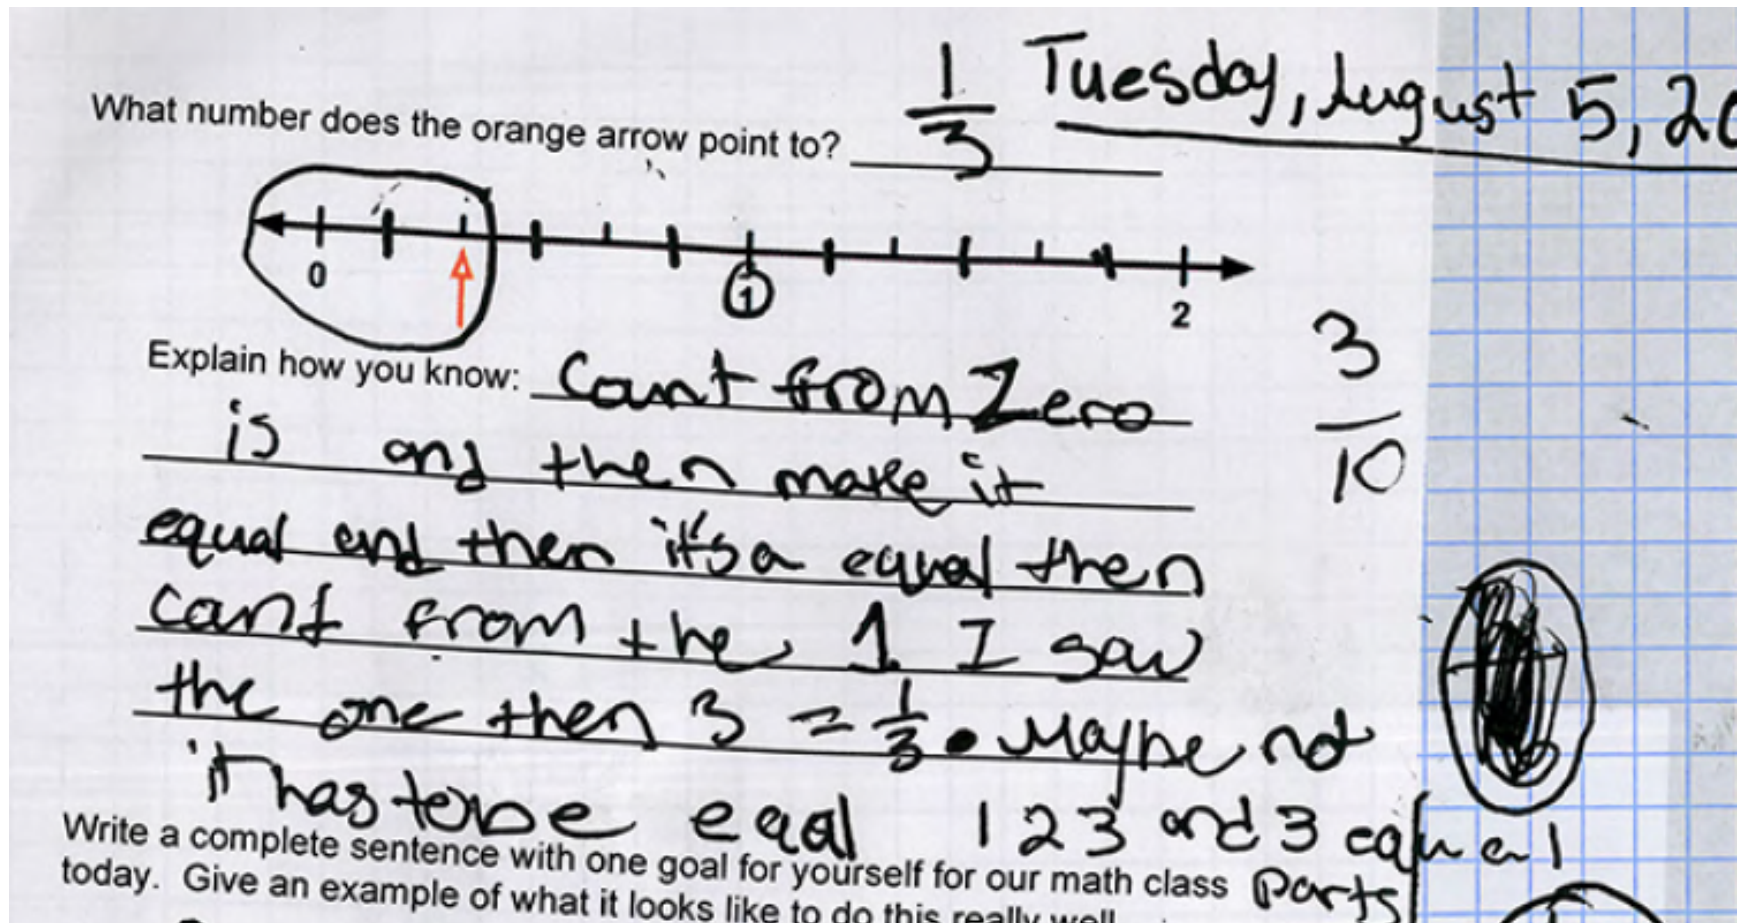 1/3 Tuesday, August 5, 20
What number does the orange arrow point to?
0 1 2
3/10
Explain how you know: Count from Zero
is and then make it
equal and then it's a equal then
cant from the 1 I saw
the one then 3 = 1/3. Maybe not
it has to be eqal 1 2 3 and 3 equal
parts
Write a complete sentence with one goal for yourself for our math class
today. Give an example of what it looks like to do this really well.